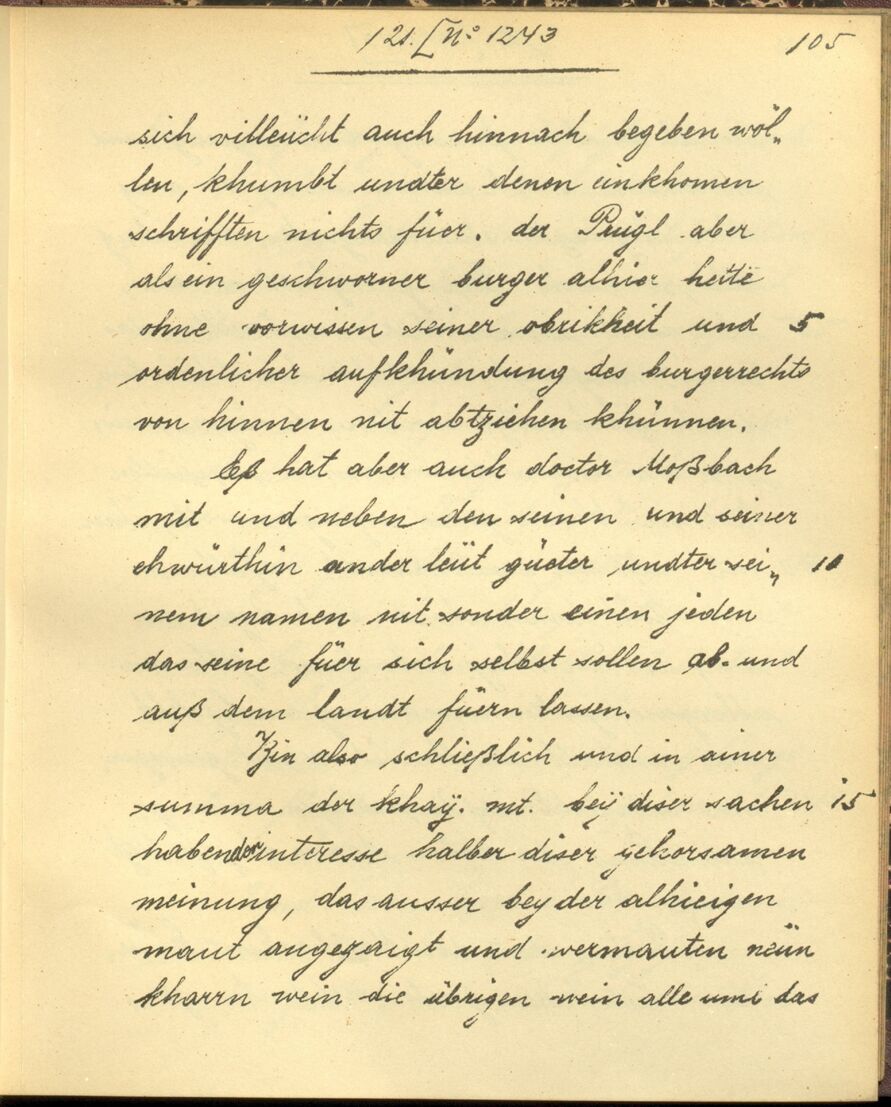 121. [No 1243
105
sich villeücht auch hinnach begeben wöl„
len, khumbt undter denen einkhomen
schrifften nichts füer. der Prügl aber
als ein geschworner burger alhier hette
ohne vorwissen seiner obrikheit und 5
ordenlicher aufkhündung des burgerrechts
von hinnen nit abtziehen khünnen.
Eß hat aber auch doctor Moßbach
mit und neben den seinen und seiner
ehwürthin ander leüt güeter undter sei„ 10
nem namen nit sonder einen jeden
das seine füer sich selbst sollen ab- und
auß dem landt füern lassen.
Bin also schließlich und in ainer
summa der khaÿ. mt. beÿ diser sachen 15
habender interesse halber diser gehorsamen
meinung, das ausser bey der alhieigen
maut angezaigt und vermauten neün
kharrn wein die übrigen wein alle umb das